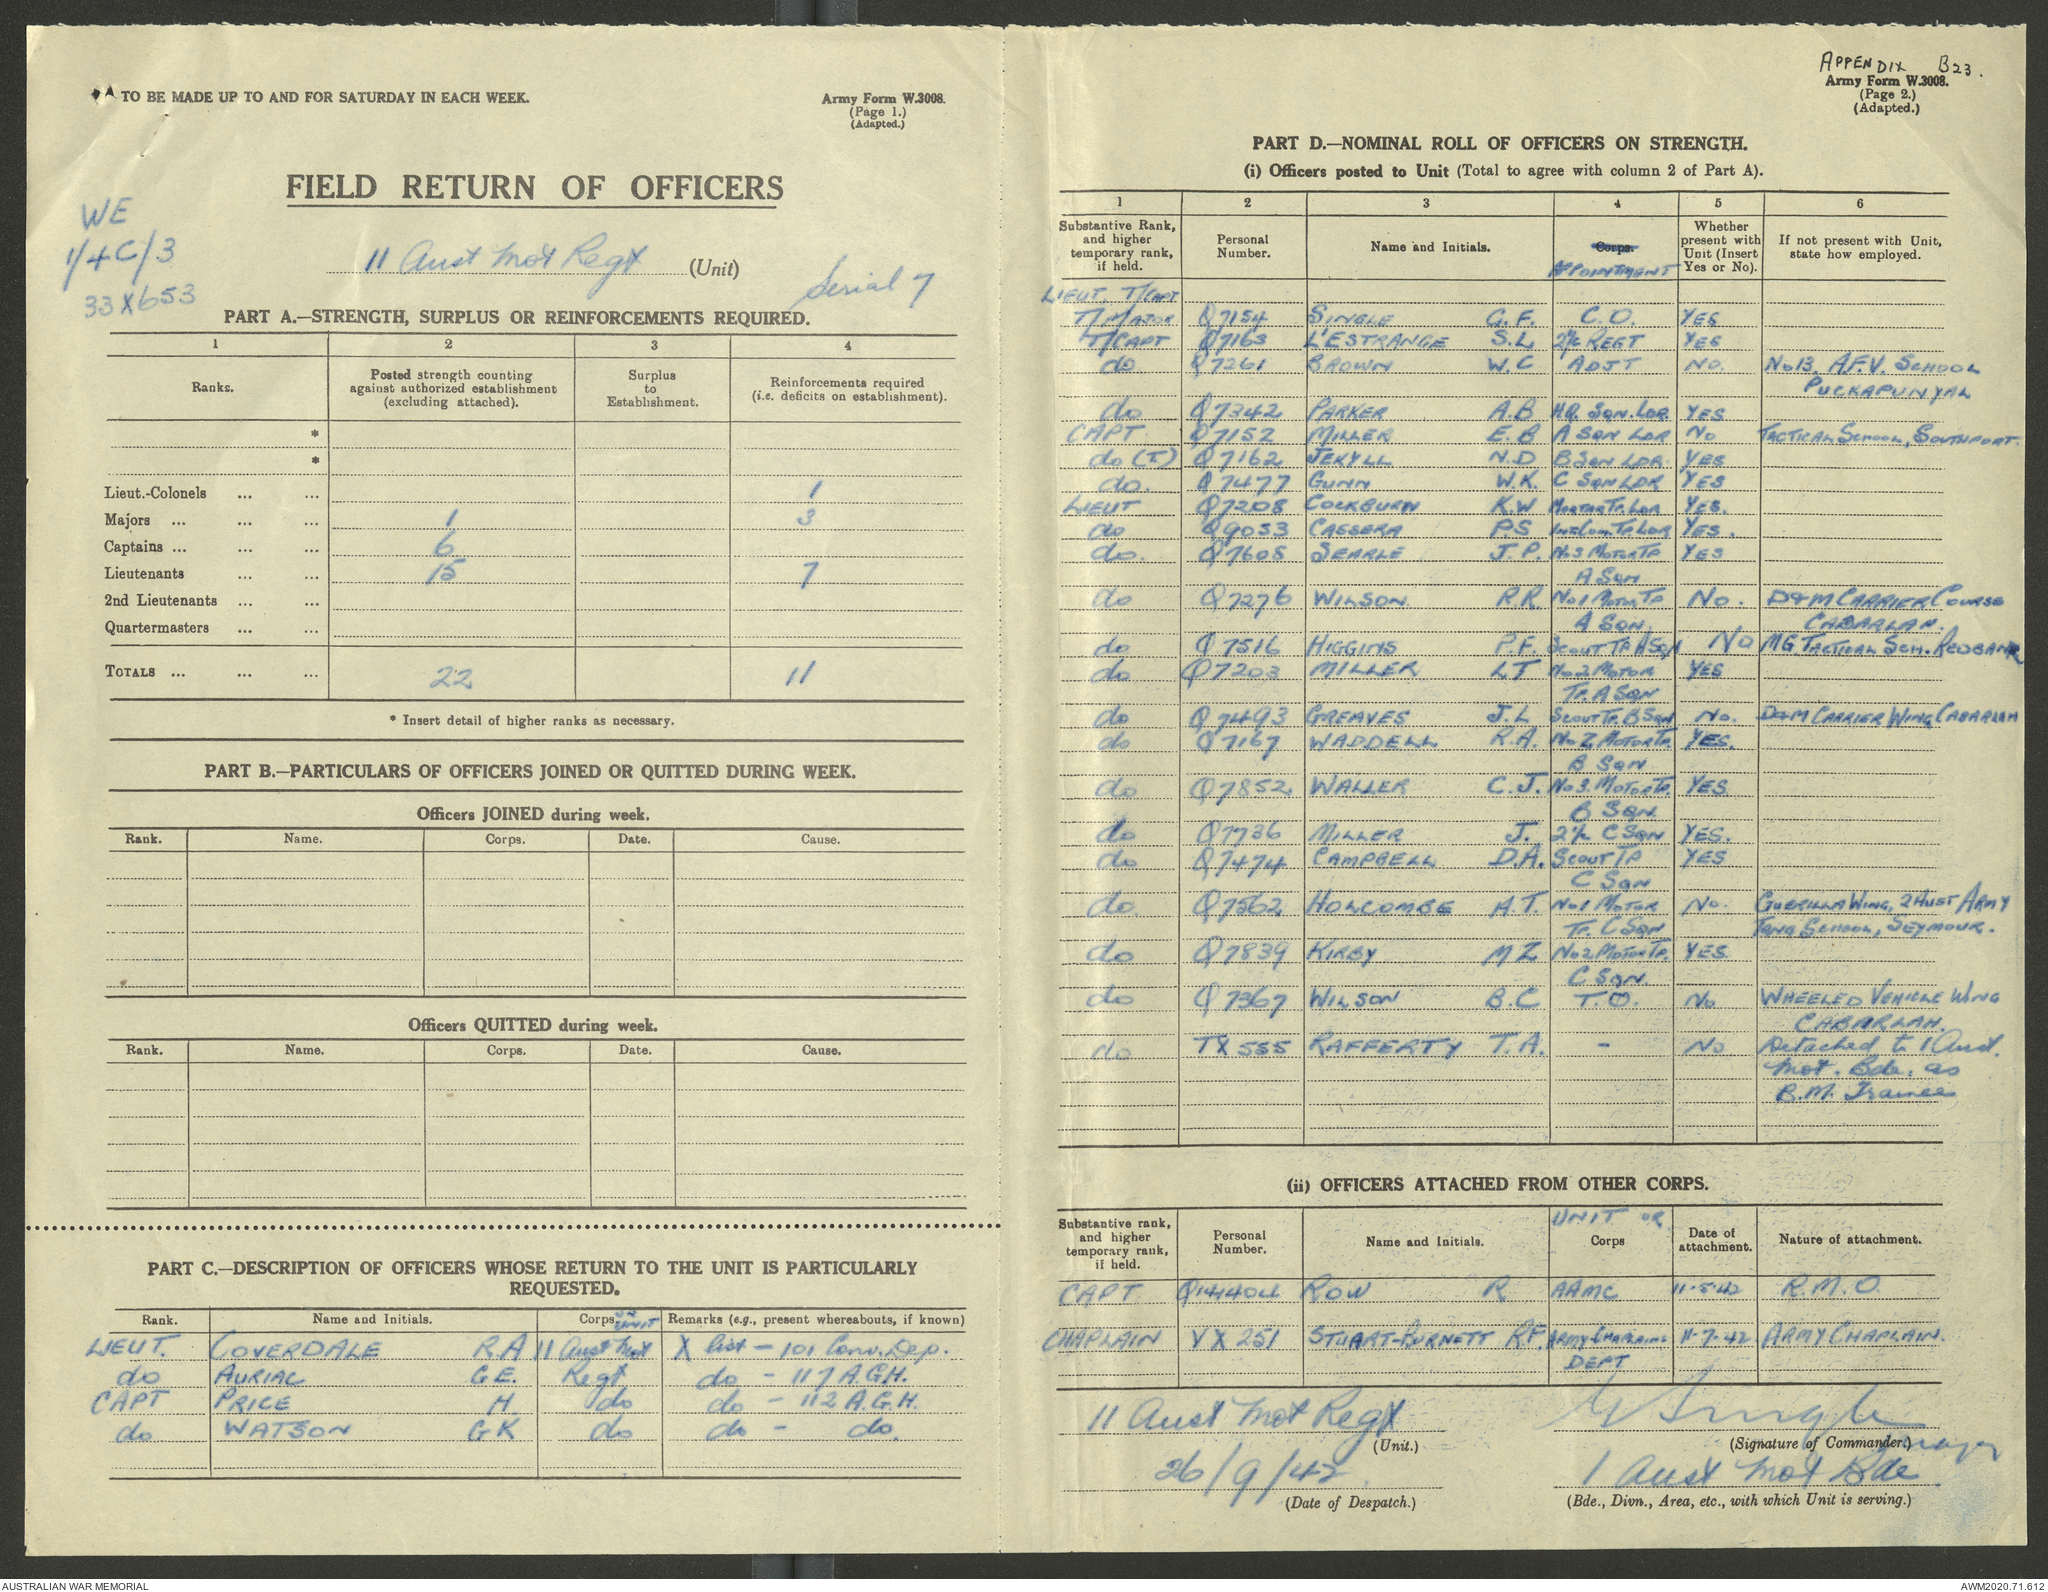 TO BE MADE UP TO AND FOR SATURDAY IN EACH WEEK.
Army Form W.3008.
(Page 1.)
(Adapted.)
FIELD RETURN OF OFFICERS
WE
1/4C/3
33X653
11 Aust Mot Regt (Unit)
Serial 7
PART A.—STRENGTH, SURPLUS OR REINFORCEMENTS REQUIRED.
1 2 3 4
Ranks. Posted strength counting against authorized establishment (excluding attached). Surplus to Establishment. Reinforcements required (i.e. deficits on establishment).
*
*
Lieut.-Colonels ... ... 1
Majors ... ... ... 1 3
Captains ... ... ... 6
Lieutenants ... ... 15 7
2nd Lieutenants ... ...
Quartermasters ... ...
TOTALS ... ... ... 22 11
* Insert detail of higher ranks as necessary.
PART B.—PARTICULARS OF OFFICERS JOINED OR QUITTED DURING WEEK.
Officers JOINED during week.
Rank. Name. Corps. Date. Cause.
Officers QUITTED during week.
Rank. Name. Corps. Date. Cause.
PART C.—DESCRIPTION OF OFFICERS WHOSE RETURN TO THE UNIT IS PARTICULARLY
REQUESTED.
Rank. Name and Initials. Corps OR UNIT Remarks (e.g., present whereabouts, if known)
LIEUT. COVERDALE R.A 11 Aust Mot X list - 101 Conv. Dep.
do AURIAC G.E. Regt do - 117 A.G.H.
CAPT PRICE H do do - 112 A.G.H.
do WATSON G K do do - do.
APPENDIX B23.
Army Form W.3008.
(Page 2.)
(Adapted.)
PART D.—NOMINAL ROLL OF OFFICERS ON STRENGTH.
(i) Officers posted to Unit (Total to agree with column 2 of Part A).
1 2 3 4 5 6
Substantive Rank, and higher temporary rank, if held. Personal Number. Name and Initials. Corps. APPOINTMENT Whether present with Unit (Insert Yes or No). If not present with Unit, state how employed.
LIEUT. T/CAPT
T/MAJOR Q7154 SINGLE G.F. C.O. YES
T/CAPT Q7163 L'ESTRANGE S.L 2i/c REGT YES
do Q7261 BROWN W.C ADJT NO. No 13. A.F.V. SCHOOL
PUCKAPUNYAL
do Q7342 PARKER A.B H.Q. SQN. LDR. YES
CAPT Q7152 MILLER E.B A SQN LDR NO TACTICAL SCHOOL, SOUTHPORT.
do (T) Q7162 JEKYLL N.D B SQN LDR YES
do. Q7477 GUNN W.K. C SQN LDR YES
LIEUT Q7208 COCKBURN K.W MORTAR TP. LDR YES.
do Q9053 CASSERA P.S INTCOM. TP. LDR YES.
do. Q7605 SEARLE J.P. No 3 MOTOR TP YES
A SQN
do Q7276 WILSON. R.R. No 1 MOTOR TP NO. D & M CARRIER COURSE
A SQN. CABARLAH.
do Q7516 HIGGINS P.F. SCOUT TP A SQN NO MG TACTICAL SCH. REDBANK
do Q7203 MILLER LT No 2 MOTOR YES
TP. A SQN
do Q7493 GREAVES J.L SCOUT TP. B SQN NO. D&M CARRIER WING CABARLAH
do Q7167 WADDELL R.A. No 2 MOTOR TP. YES.
B SQN
do Q7852 WALLER C.J. No 3. MOTOR TP. YES
B SQN.
do Q7736 MILLER J. 2i/c C SQN YES.
do Q7474 CAMPBELL D.A. SCOUT TP YES
C SQN
do. Q7562 HOLCOMBE A.T. No 1 MOTOR NO. GUERILLA WING, 2 AUST ARMY
TP. C SQN TRNG SCHOOL, SEYMOUR.
do Q7839 KIRBY M Z No 2 MOTOR TP. YES.
C SQN.
do Q7367 WILSON B.C T.O. NO WHEELED VEHICLE WING
CABARLAH.
do TX 555 RAFFERTY T.A. - NO Detached to 1 Aust.
Mot. Bde. as
B.M. Trainee
(ii) OFFICERS ATTACHED FROM OTHER CORPS.
Substantive rank, and higher temporary rank, if held. Personal Number. Name and Initials. UNIT OR Corps Date of attachment. Nature of attachment.
CAPT ROW R AAMC 11-5-42 R.M.O.
CHAPLAIN VX 251 STUART-BURNETT R.F. ARMY CHAPLAINS 11-7-42 ARMY CHAPLAIN.
DEPT
11 Aust Mot Regt
(Unit.)
G Single Major
(Signature of Commander.)
26/9/42
(Date of Despatch.)
1 Aust Mot Bde
(Bde., Divn., Area, etc., with which Unit is serving.)
AUSTRALIAN WAR MEMORIAL
AWM2020.71.612